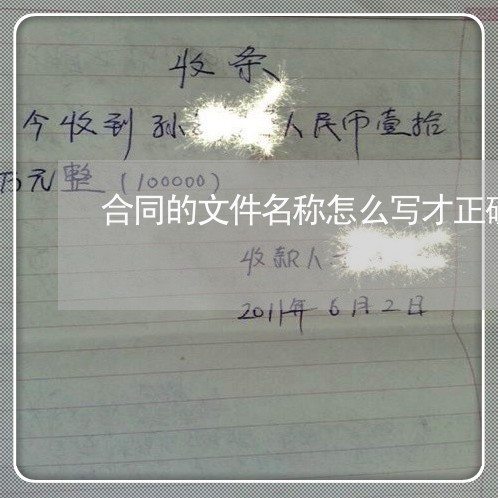 收条
今收到孙 人民币壹拾
万元整(100000)
合同的文件名称怎么写才正确
收款人
2011年6月2日